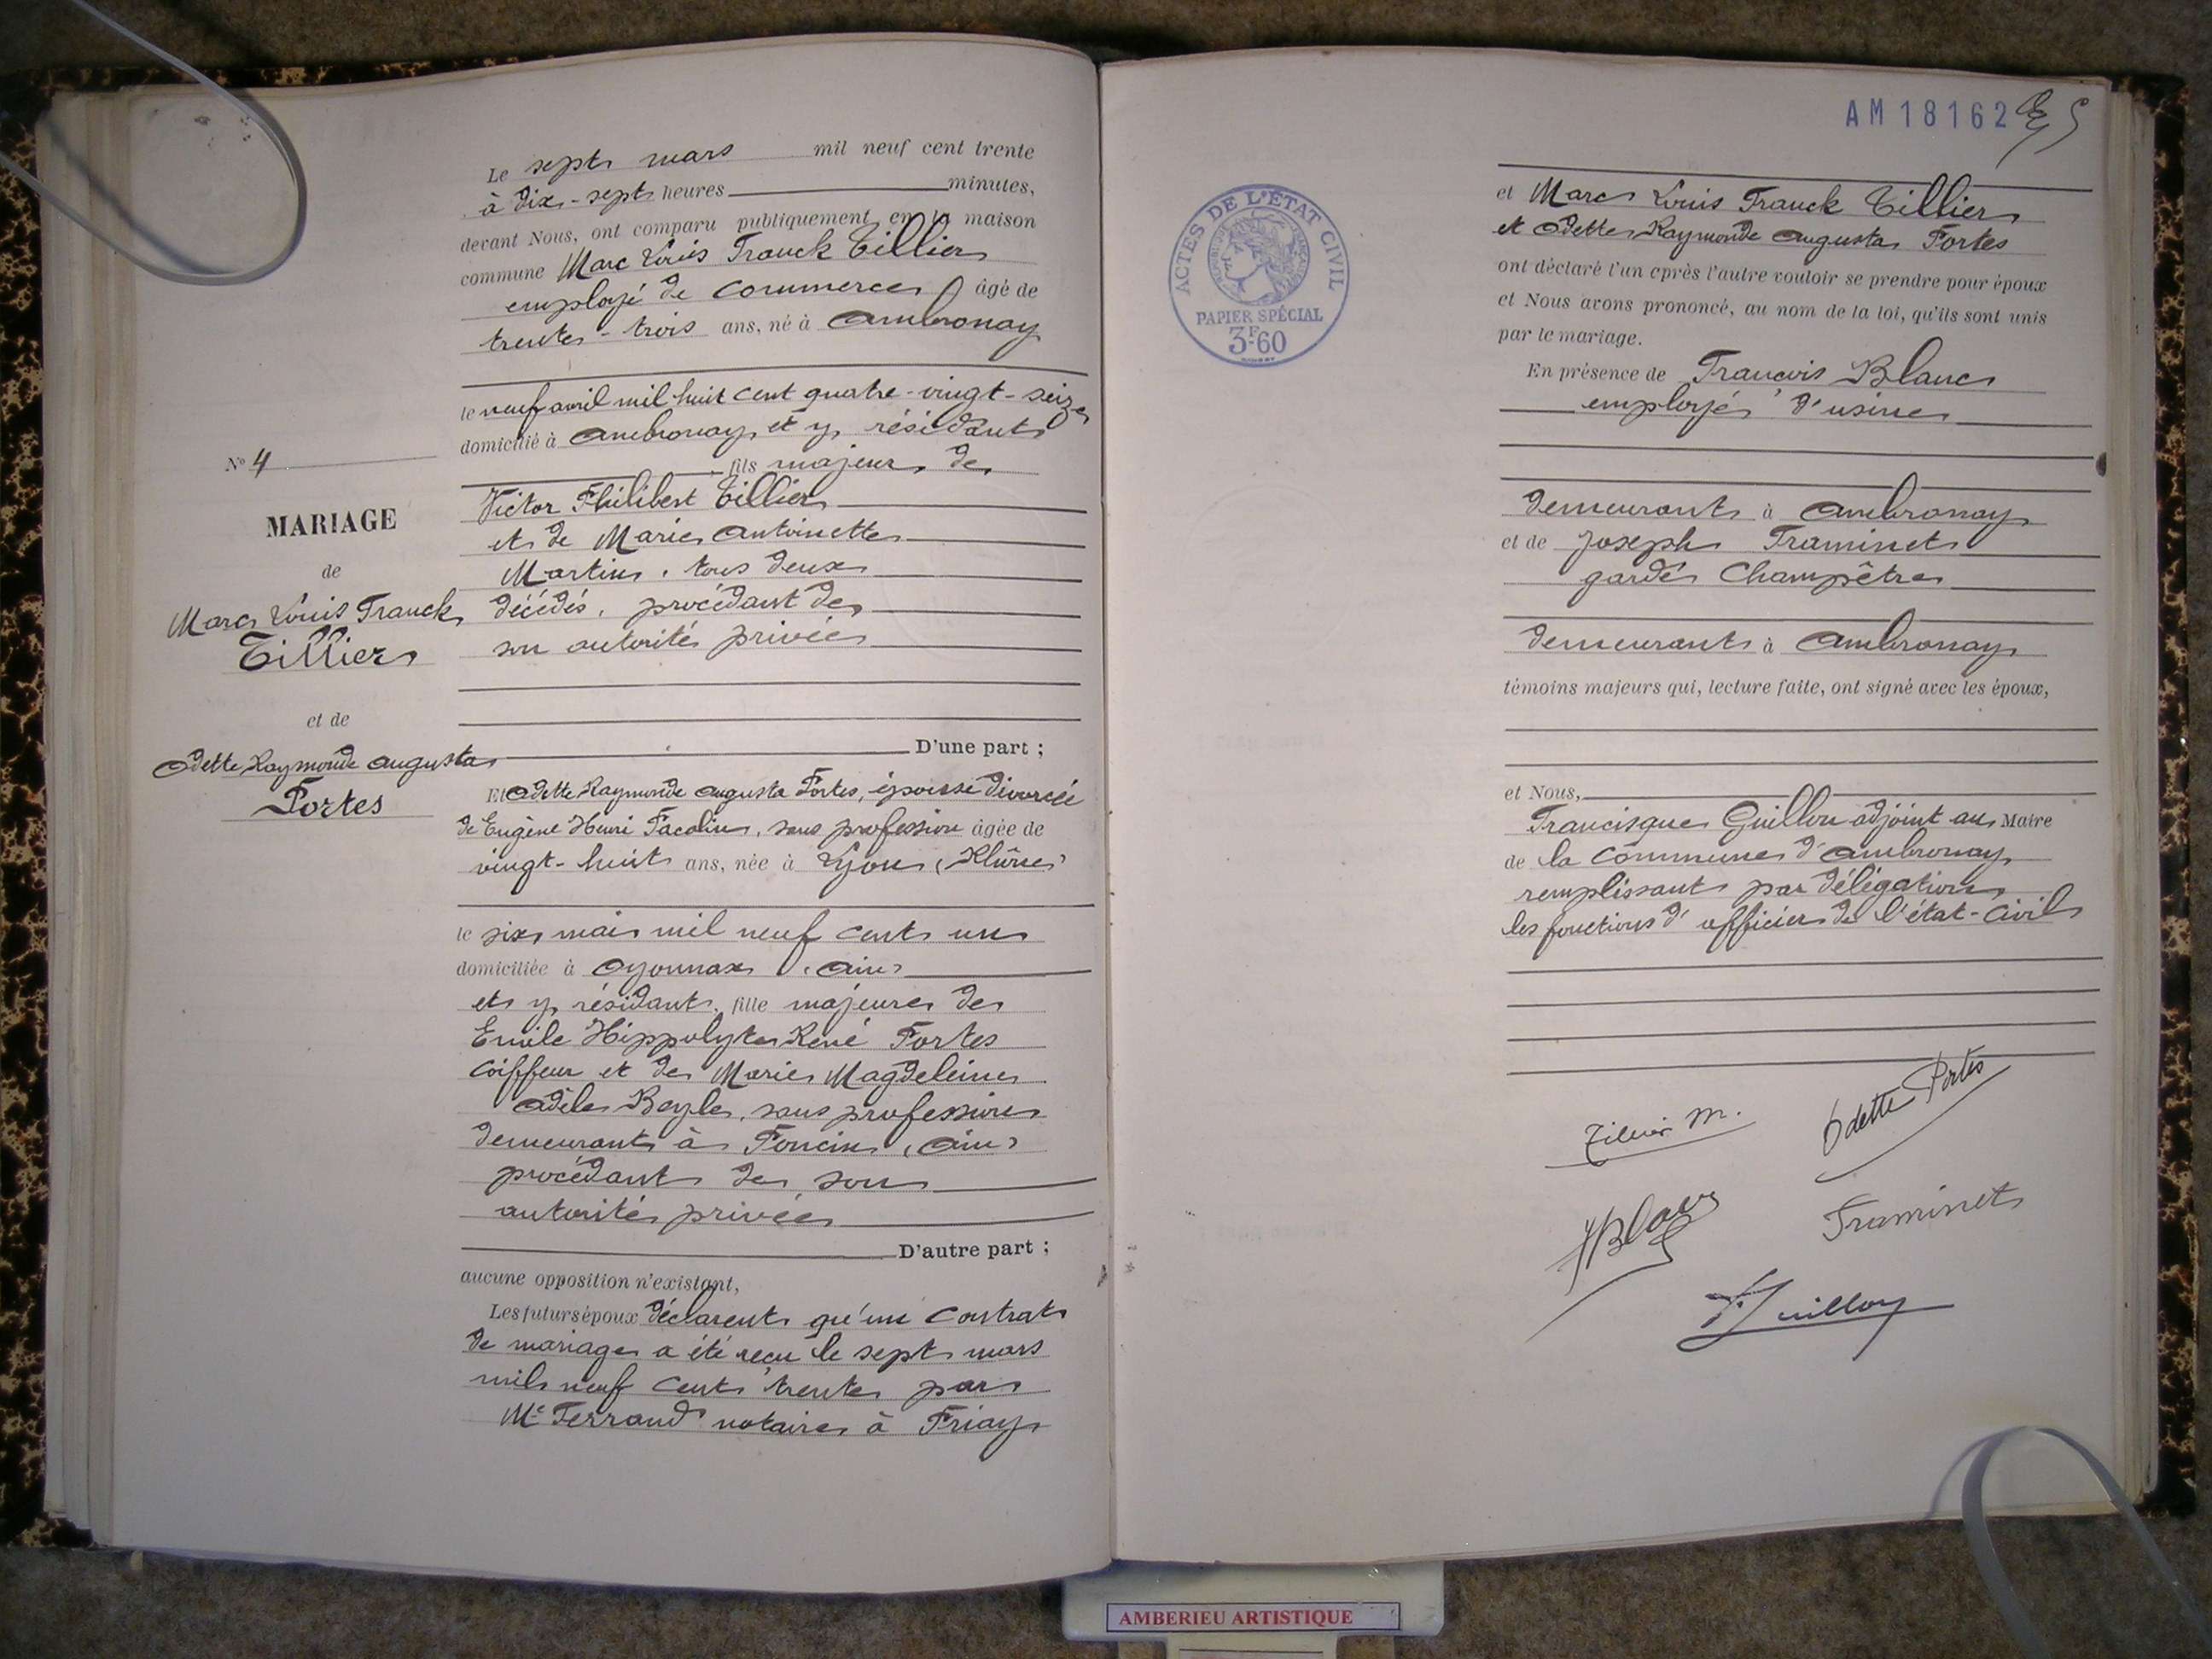 Le sept mars mil neuf cent trente
à dix-sept heures minutes,
devant Nous, ont comparu publiquement en la maison
commune Marc Louis Franck Tillier
employé de commerce âgé de
trente-trois ans, né à Ambronay
le neuf avril mil huit cent quatre-vingt-seize
domicilié à Ambronay et y résidant
fils majeur de
Victor Philibert Tillier
et de Marie Antoinette
Martin, tous deux
décédés, procédant de
son autorité privée
D'une part ;
Et Odette Raymonde Augusta Portes, épouse divorcée
de Eugène Henri Pacalin, sans profession âgée de
vingt-huit ans, née à Lyon (Rhône)
le six mai mil neuf cent un
domiciliée à Oyonnax (Ain)
et y résidant, fille majeure de
Emile Hippolyte René Portes
coiffeur et de Marie Magdeleine
Adèle Beyle, sans profession
demeurant à Poncin (Ain)
procédant de son
autorité privée
D'autre part ;
aucune opposition n'existant,
Les futurs époux déclarent qu'un contrat
de mariage a été reçu le sept mars
mil neuf cent trente par
Me Ferrand notaire à Priay
No 4
MARIAGE
de
Marc Louis Franck
Tillier
et de
Odette Raymonde Augusta
Portes
AM 18162
ACTES DE L'ÉTAT CIVIL
RÉPUBLIQUE FRANÇAISE
PAPIER SPÉCIAL
3F.60
et Marc Louis Franck Tillier
et Odette Raymonde Augusta Portes
ont déclaré l'un après l'autre vouloir se prendre pour époux
et Nous avons prononcé, au nom de la loi, qu'ils sont unis
par le mariage.
En présence de François Blanc
employé d'usine
demeurant à Ambronay
et de Joseph Traminet
garde Champêtre
demeurant à Ambronay
témoins majeurs qui, lecture faite, ont signé avec les époux,
et Nous,
Francisque Guillon adjoint au Maire
de la Commune d'Ambronay
remplissant par délégation
les fonctions d'officier de l'état-civil
Tillier M.
Odette Portes
Blanc
Traminet
F. Guillon
AMBERIEU ARTISTIQUE